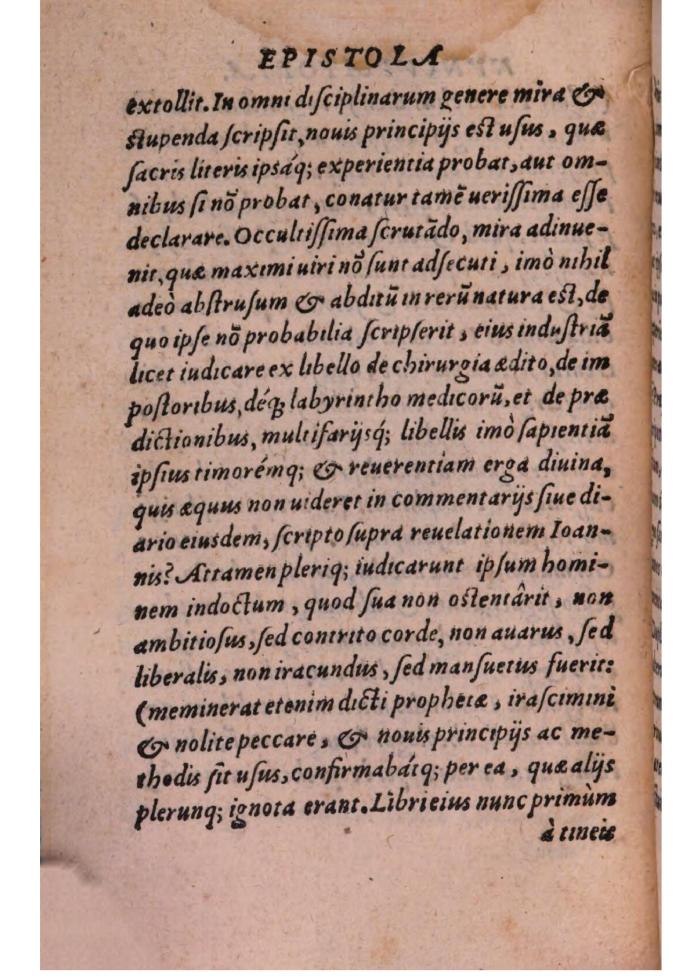 EPISTOLA
extollit. In omni disciplinarum genere mira &
stupenda scripsit, nouis principijs est usus, quæ
sacris literis ipsáq; experientia probat, aut om-
nibus si nõ probat, conatur tamẽ uerissima esse
declarare. Occultissima scrutãdo, mira adinue-
nit, quæ maximi uiri nõ sunt adsecuti, imò nihil
adeò abstrusum & abditũ in rerũ natura est, de
quo ipse nõ probabilia scripserit, eius industriã
licet iudicare ex libello de chirurgia ædito, de im
postoribus, déq; labyrintho medicorũ, et de præ
dictionibus, multifarijsq́; libellis imò sapientiã
ipsius timorémq; & reuerentiam erga diuina,
quis æquus non uideret in commentarijs siue di-
ario eiusdem, scripto supra reuelationem Ioan-
nis? Attamen pleriq; iudicarunt ipsum homi-
nem indoctum, quod sua non ostentârit, non
ambitiosus, sed contrito corde, non auarus, sed
liberalis, non iracundus, sed mansuetus fuerit:
(meminerat etenim dicti prophetæ, irascimini
& nolite peccare, & nouis principijs ac me-
thodis sit usus, confirmabátq; per ea, quæ alijs
plerunq; ignota erant. Libri eius nunc primùm
à tineis